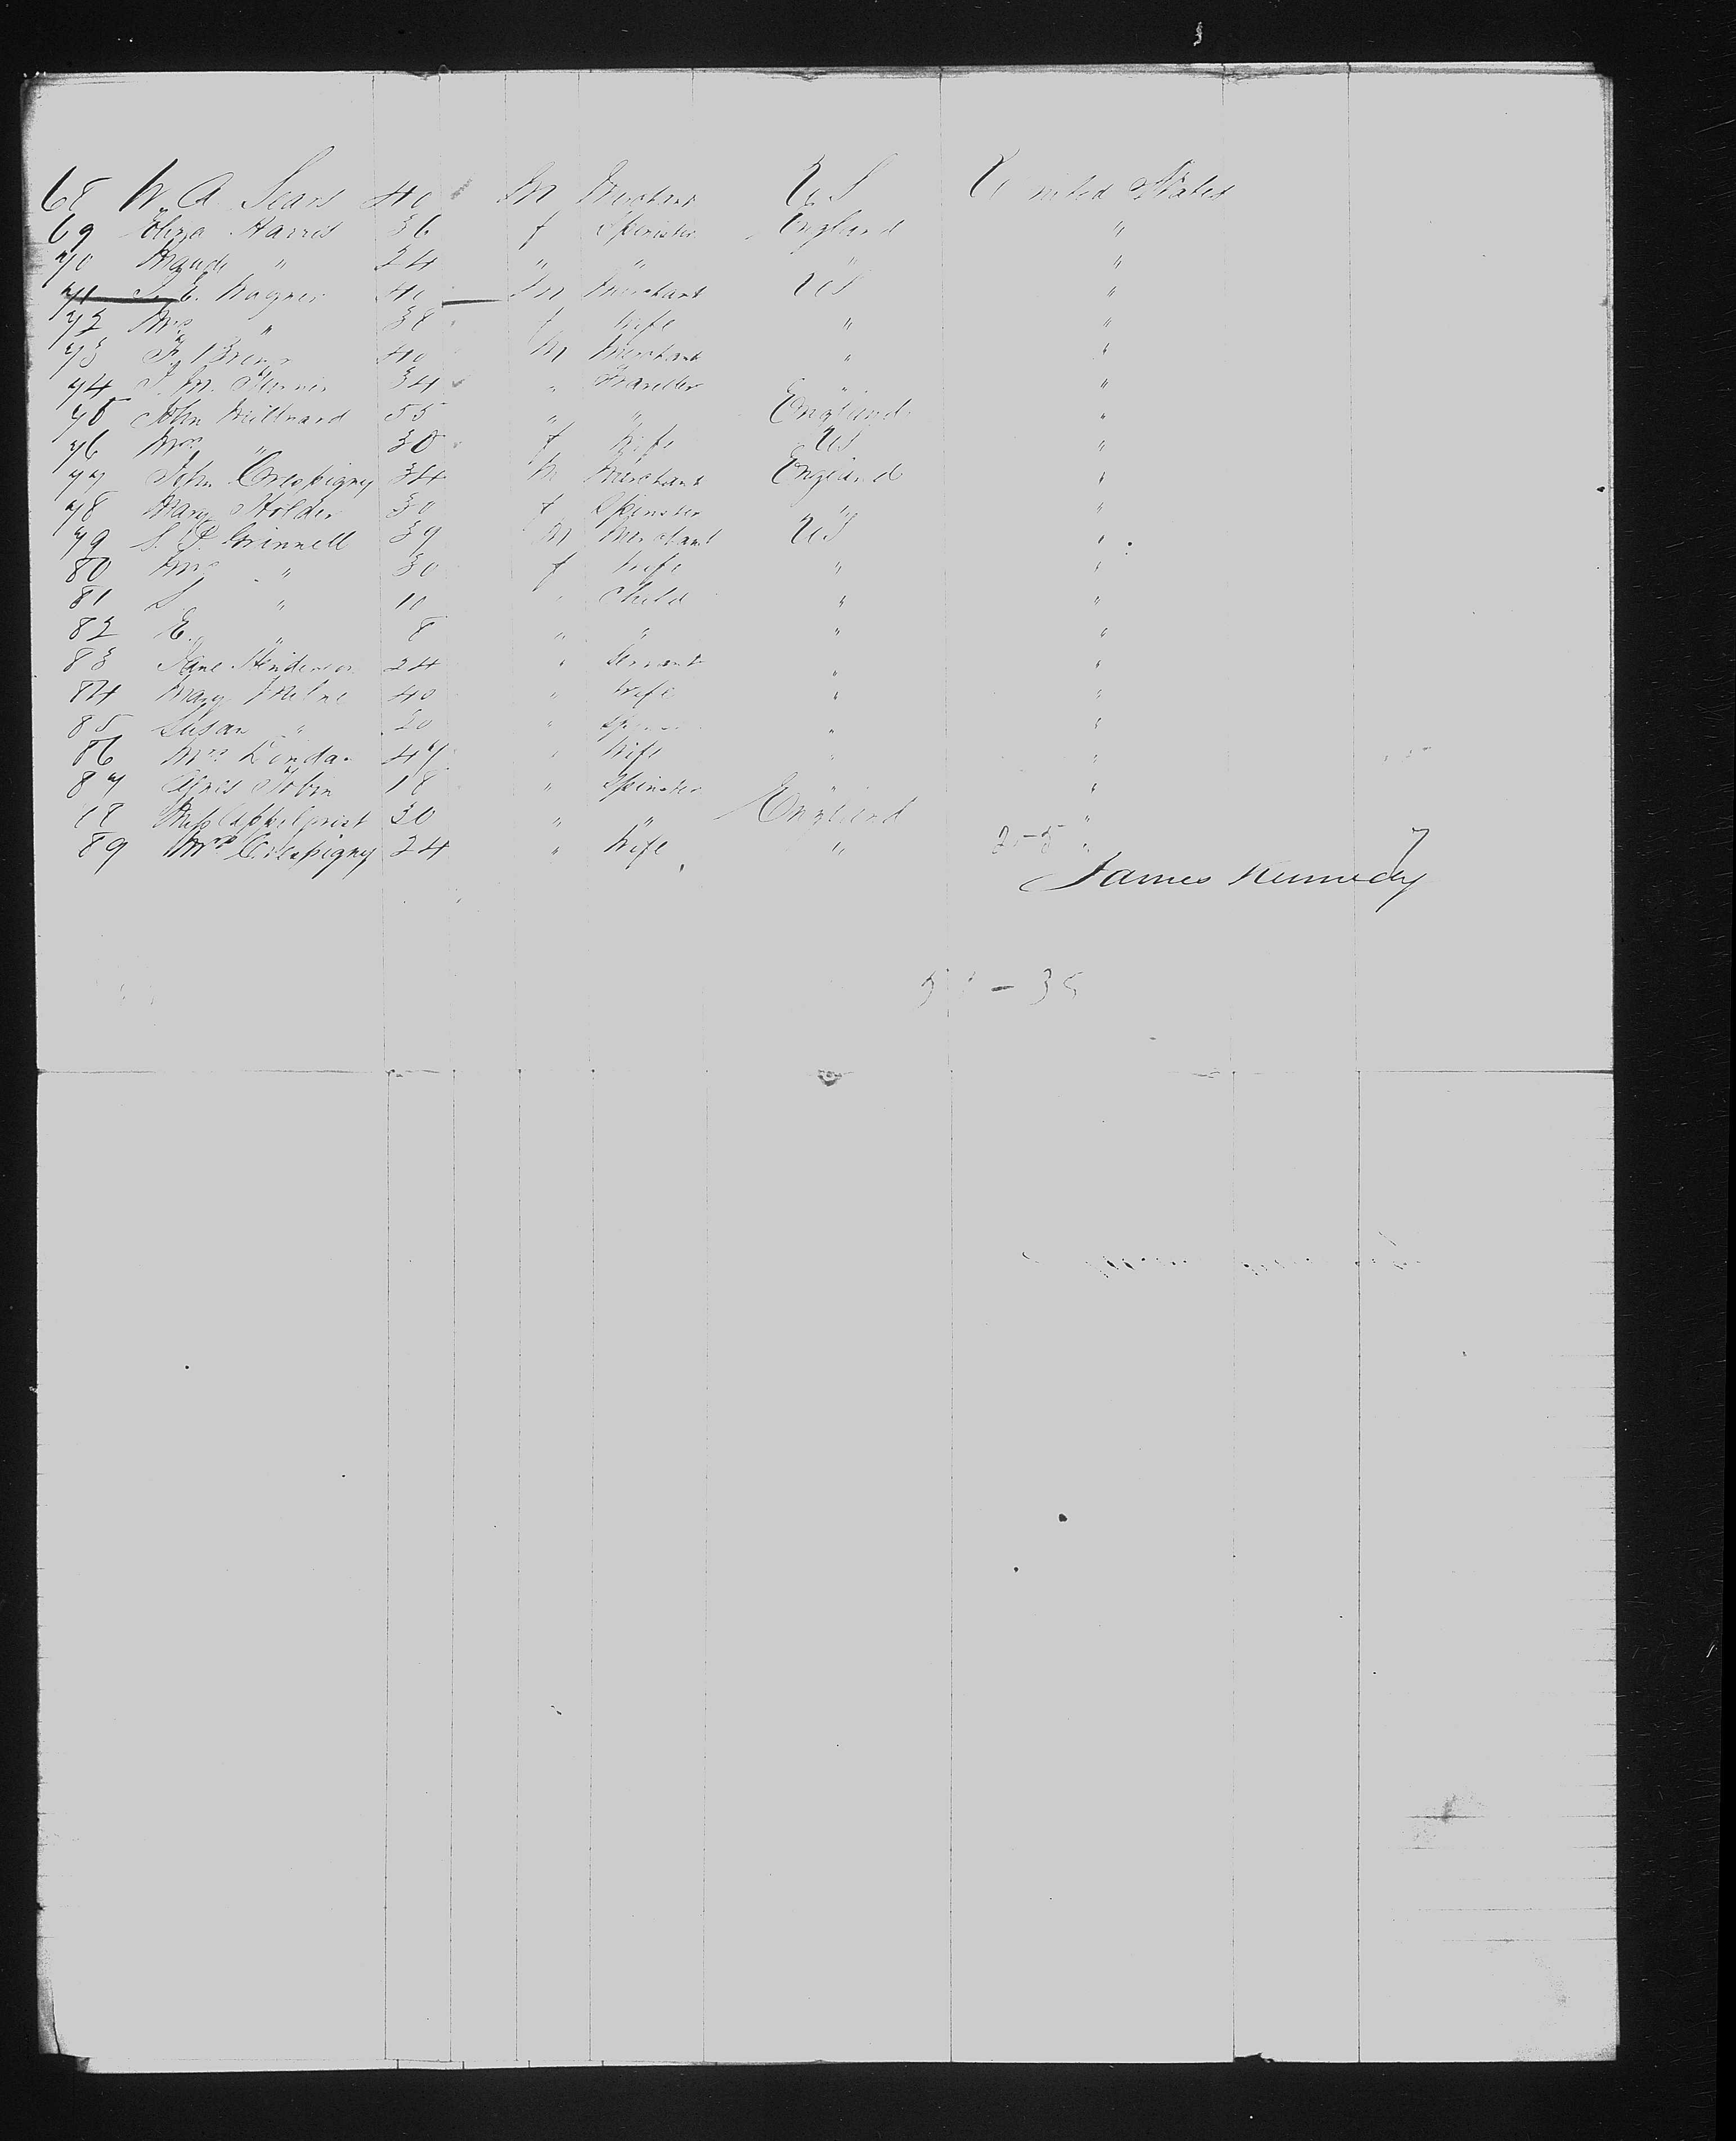 68 W. A. Sears 40 M Merchant US United States
69 Eliza Harris 36 f Spinster England "
70 Maude " 24 " " " "
71 J. E. Wagner 40 M Merchant US "
72 Mrs " 38 f Wife " "
73 F. 40 M Merchant " "
74 J. M. 34 " Traveller " "
75 John Millward 55 " " England "
76 Mrs " 30 f Wife US "
77 John Crespigny 34 M Merchant England "
78 Mary Holder 30 f Spinster " "
79 S. P. Grinnell 39 M Merchant US "
80 Mrs " 30 f Wife " "
81 S. " 10 " Child " "
82 E. " 8 " " " "
83 Jane Henderson 24 " Servant " "
84 Mary Milne 40 " Wife " "
85 Susan " 20 " " "
86 Mrs 47 " Wife " "
87 Agnes Tobin 18 " Spinster " "
88 Miss 30 " " England "
89 Mrs Crespigny 24 " Wife " "
James Kennedy